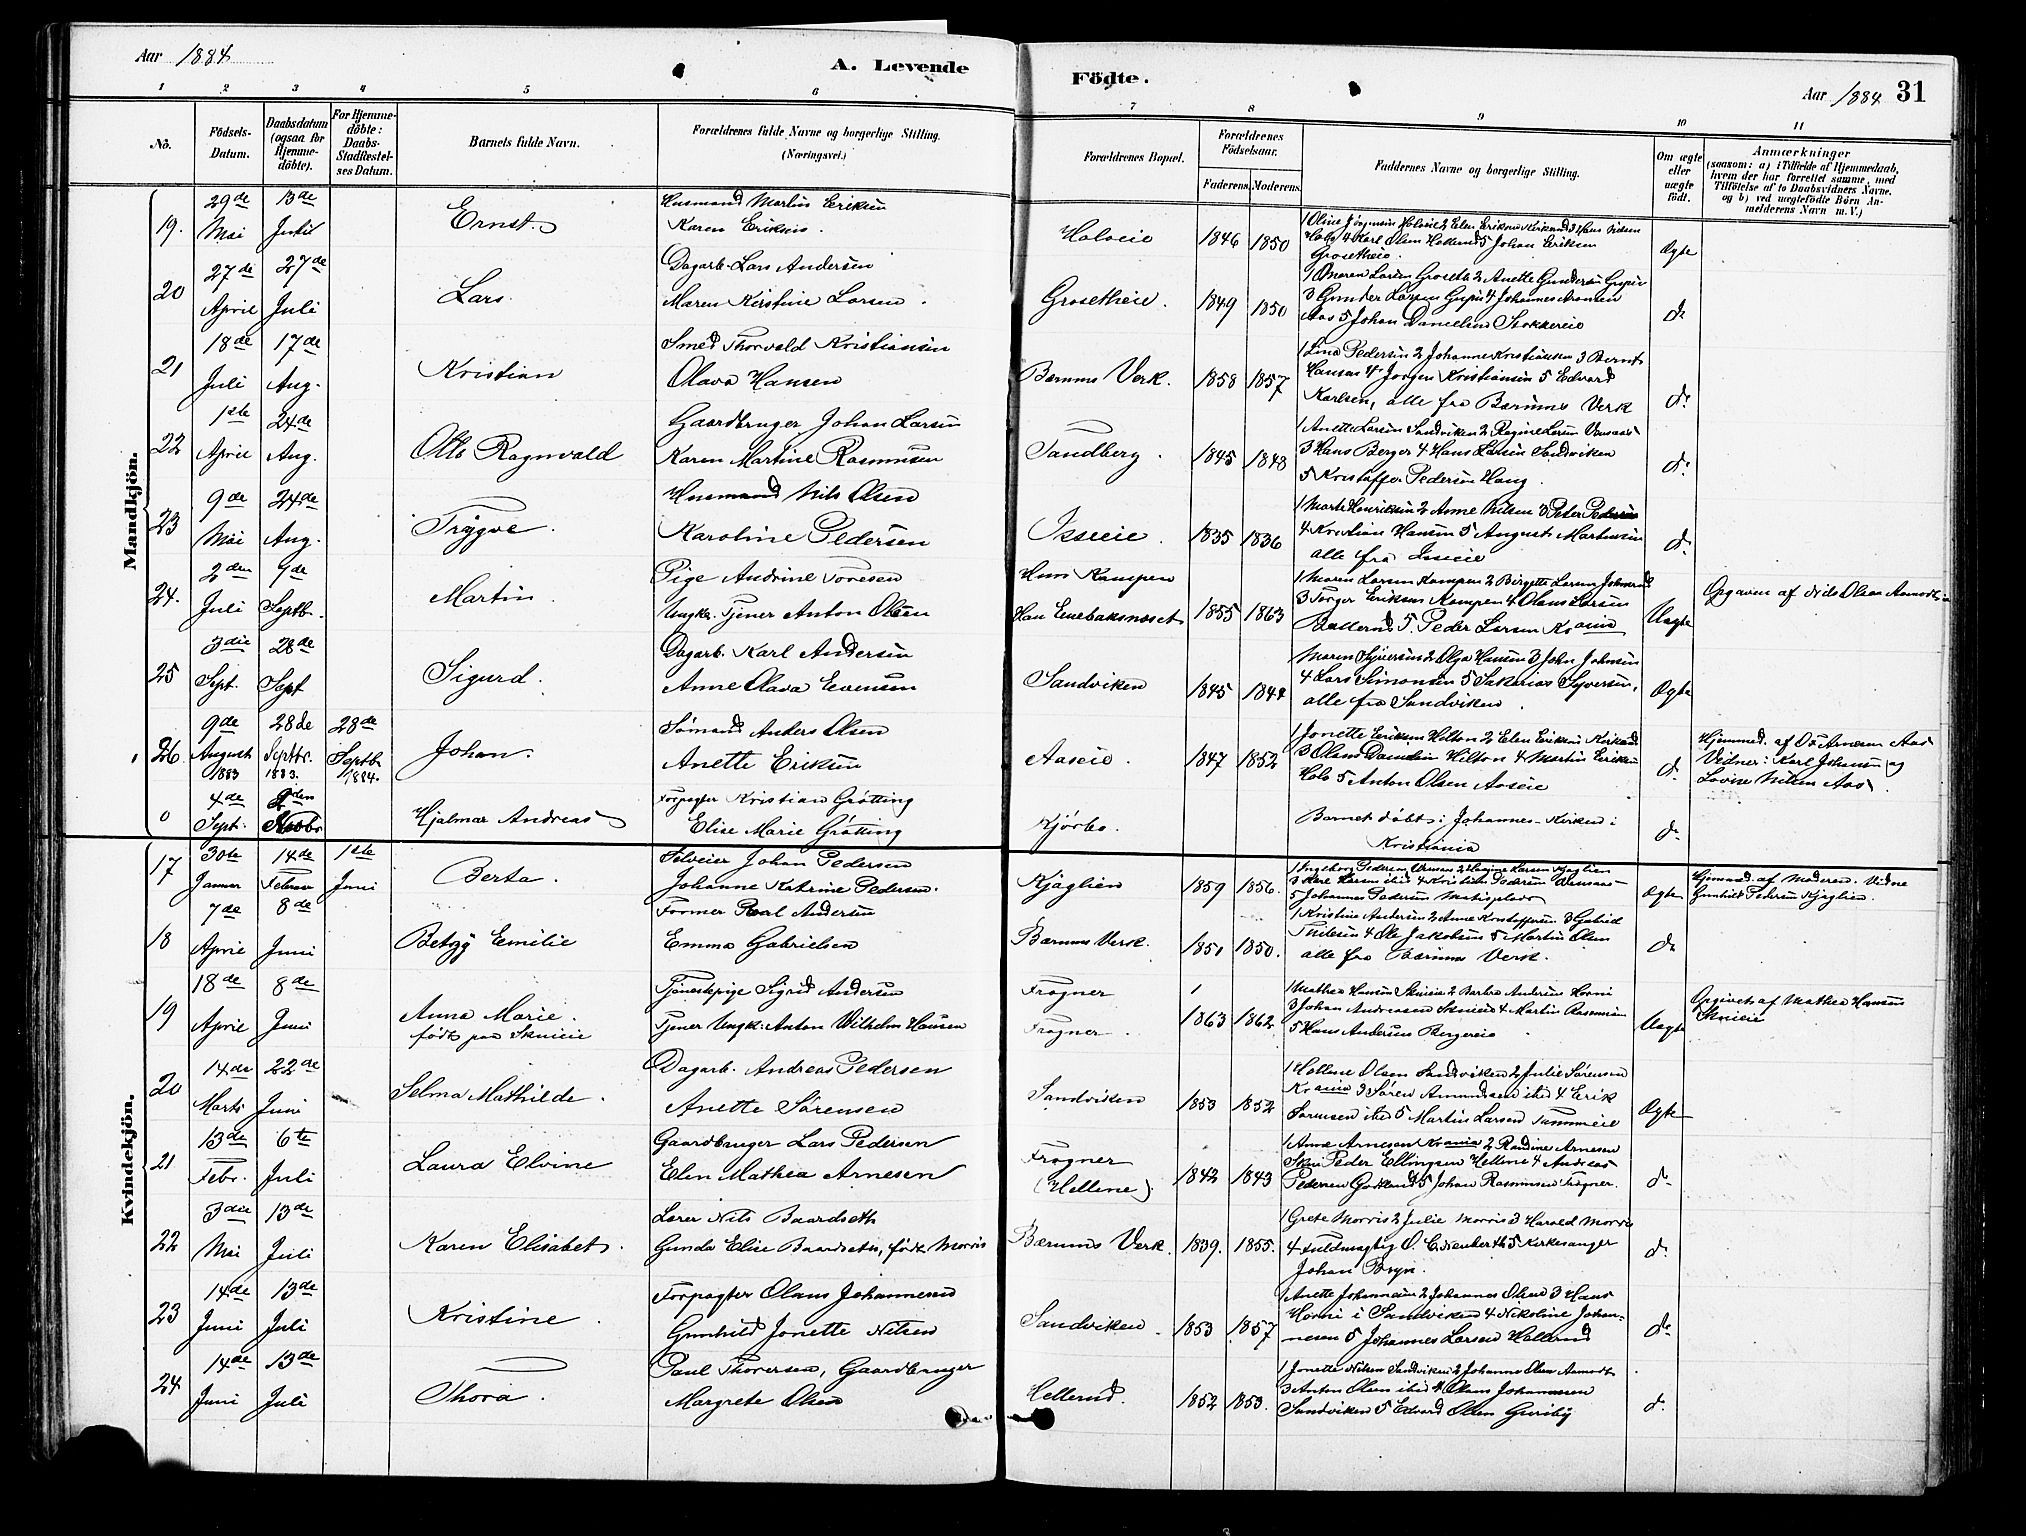 Aar 1884
A. Levende
Födte.
Aar 1884 31
1 2 3 4 5 6 7 8 9 10 11
No.
Födsels-
Datum.
Daabsdatum
(ogsaa for
Hjemme-
döbte).
For Hjemme-
döbte:
Daabs-
Stadfæstel-
ses Datum.
Barnets fulde Navn.
Forældrenes fulde Navne og borgerlige Stilling.
(Næringsvei.)
Forældrenes Bopæl.
Forældrenes
Födselsaar.
Faderens. Moderens.
Faddernes Navne og borgerlige Stilling.
Om ægte
eller
uægte
födt.
Anmærkninger
(saasom: a) i Tilfælde af Hjemmedaab,
hvem der har forrettet samme, med
Tilföielse af to Daabsvidners Navne,
og b) ved uægtefödte Börn An-
melderens Navn m. V.)
Mandkjön.
19. 29de Mai 13de Juli Ernst.
Husmand Martin Eriksen
Karen Eriksen.
Holveie 1846 1850
Grosetheie.
Ægte
20 27de April 27de Juli Lars.
Dagarb. Lars Andersen
Maren Kirstine Larsen.
Grosetheie. 1849 1850
3 Gunder Larsen 4 Johannes Aronsen
Aas 5 Johan Danielsen Stokkereie
do
21 18de Juli 17de Aug. Kristian
Smed Thorvald Kristiansen
Olava Hansen
Bærums Verk. 1858 1857
1 Lina Pedersen 2 Johanne Kristiansen 3 Bernt
Hansen 4 Jørgen Kristiansen 5 Edvard
Karlsen, alle fra Bærums Verk
do
22 1ste April 24de Aug. Otto Ragnvald
Gaardbruger Johan Larsen
Karen Martine Rasmussen
Tandberg. 1845 1848
1 Anette Larsen Sandviken 2 Regine Larsen
3 Hans Berger 4 Hans Larsen Sandviken
5 Kristoffer Pedersen Haug.
do
23 9de Mai 24de Aug. Trygve.
Husmand Nils Olsen
Karoline Pedersen
Isieie. 1835 1836
1 Marte Henriksen 2 Anne Nilsen 3 Peter Pedersen
4 Kristian Hansen 5 August Martinsen
alle fra Isieie
do
24. 2den Juli 7de Septb. Martin.
Pige Andrine Toresen
Ungkr. Tjener Anton Olsen
Hun Kampen
Han Enebaksneset 1855 1863
1 Maren Larsen Kampen 2 Birgitte Larsen
3 Torger Eriksen Kampen 4 Olaus Larsen
Ballerud 5. Peder Larsen Krania
Uægte
Opgaven af Nils Olsen Aamodt
25 3die Sept. 28de Sept Sigurd.
Dagarb. Karl Andersen
Anne Olava Evensen
Sandviken 1845 1844
Maren Syversen 2 Olga Hansen 3 John Johnsen
4 Lars Simonsen 5 Sakarias Syversen,
alle fra Sandviken.
Ægte
26. 9de August 1883 28de Septbr. 1883. 28de Septb. 1884. Johan.
Sømand Anders Olsen
Anette Eriksen
Aaseie. 1847 1852
1 Jonette Eriksen Hilton 2 Elen Eriksen Kirkerud
3 Olaus Danielsen Hilton 4 Martin Eriksen
Holo 5 Anton Olsen Aaseie
do
Hjemmed. af Arnesen Aas
Vidner: Karl Johansen og
Lovise Nilsen Aas.
0 4de Sept. Novbr. Hjalmar Andreas
Forpagter Kristian Grøtting
Elise Marie Grøtting
Kjørbo.
Barnet døbt i Johannes-Kirken i
Kristiania
do
Kvindekjön.
17 30te Januar 14de Februar 1ste Juni Berta.
Sølveier Johan Pedersen
Johanne Katrine Pedersen.
Kjaglien 1859 1856.
5 Johannes Pedersen
Ægte
Hjemmed. af Moderen. Vidne
Gunhild Pedersen Kjaglien.
18 7de April 8de Juni Betzy Emilie
Former Karl Andersen
Emma Gabrielsen
Bærums Verk. 1851 1850.
1 Kristine Andersen 2 Anne Kristoffersen 3 Gabriel
4 Ole Jakobsen 5 Martin Olsen
alle fra Bærums Verk.
do
19 18de April 8de Juni Anna Marie.
født paa Skuieie
Tjenestepige Sigrid Andersen
Tjener Ungk: Anton Wilhelm Hansen
Frogner
Frogner. 1863 1862
1 Mathea Hansen Skuieie 2 Barbra Andersen Horni
3 Johan Andreasen Skuieie 4 Martin Rasmussen
5 Hans Andersen Bergereie
Uægte
Opgivet af Mathea Hansen
Skuieie
20 14de Marts 22de Juni Selma Mathilde.
Dagarb. Andreas Pedersen
Anette Sørensen
Sandviken 1853 1852
1 Olsen Sandviken 2 Julie Sørensen
Krania 3 Søren Amundsen ibid 4 Erik
Sørensen ibid 5 Martin Larsen Tømmeie
Ægte
21 13de Febr. 6te Juli Laura Elvine
Gaardbruger Lars Pedersen
Elen Mathea Arnesen
Frogner
(Hellene) 1842 1843
1 Anne Arnesen Krania 2 Randine Arnesen
Skui Peder Ellingsen Hellene 4 Andreas
Pedersen 5 Johan Rasmussen Frogner.
do
22 3die Mai 13de Juli Karen Elisabet.
Lærer Nils Baardseth
Gunda Elise Baardseth, født Morris
Bærums Verk. 1839. 1855.
1 Grete Morris 2 Julie Morris 3 Harald Morris
4 Fuldmægtig O. C. Neuberth 5 Kirkesanger
Johan Bryn.
do
23 14de Juni 13de Juli Kristine.
Forpagter Olaus Johannesen
Gunhild Jonette Nilsen
Sandviken. 1853 1857
1 Anette Johannesen 2 Johannes Olsen 3 Hans
Horni i Sandviken 4 Nikoline Johan-
nesen 5 Johannes Larsen Hellerud
do
24 14de Juni 13de Juli Thora.
Paul Thoresen, Gaardbruger
Margrete Olsen
Hellerud. 1852 1853.
1 Jonette Nilsen Sandviken 2 Johanne Olsen Aamodt
3 Anton Olsen ibid 4 Olaus Johannesen
Sandviken 5 Edvard Olsen Guriby
do